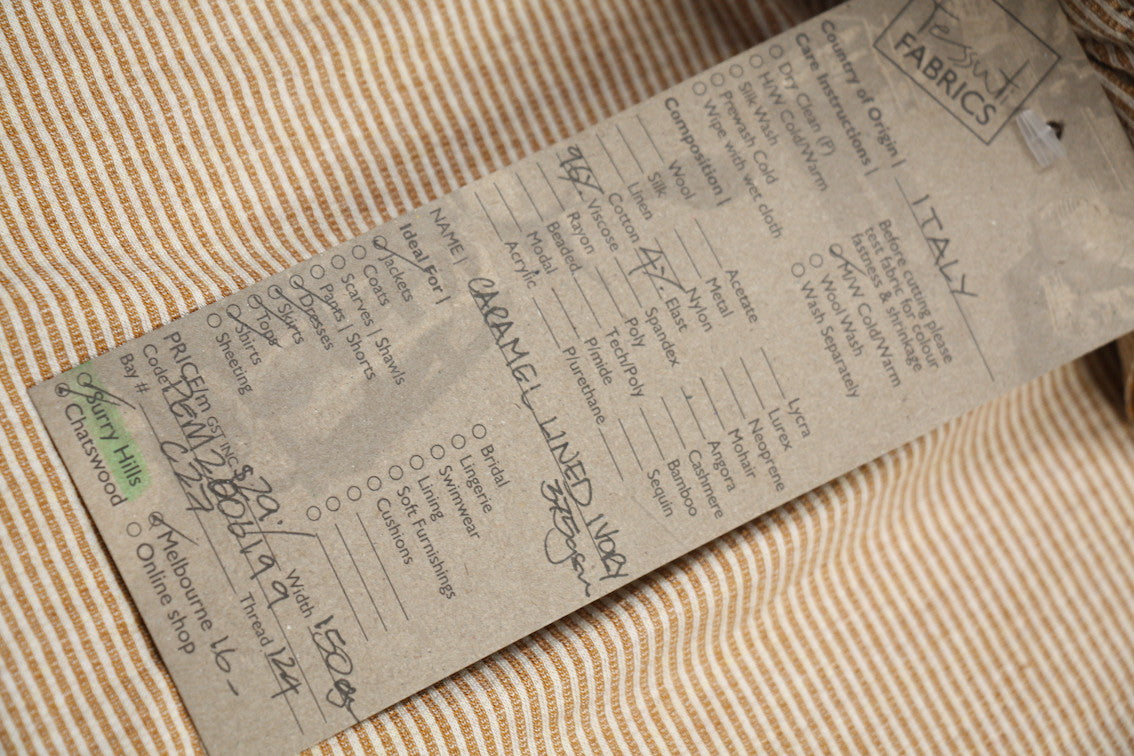 Tessuti
FABRICS
Country of Origin | ITALY
Care Instructions |
Dry Clean (P)
H/W Cold/Warm
Silk Wash
Prewash Cold
Wipe with wet cloth
Before cutting please
test fabric for colour
fastness & shrinkage
M/W Cold/Warm
Wool Wash
Wash Separately
Composition |
Wool
Silk
Linen
Cotton
96% Viscose
Rayon
Beaded
Modal
Acrylic
Acetate
Metal
Nylon
4% Elast
Spandex
Poly
Tech/Poly
P/mide
P/urethane
Lycra
Lurex
Neoprene
Mohair
Angora
Cashmere
Bamboo
Sequin
NAME | CARAMEL LINED IVORY
Ideal For |
Jackets
Coats
Scarves | Shawls
Pants | Shorts
Dresses
Skirts
Tops
Shirts
Sheeting
Bridal
Lingerie
Swimwear
Lining
Soft Furnishings
Cushions
PRICE/m GST INC $39.- Width 150cm
Code Thread 124
Bay # C27
Surry Hills
Chatswood
Melbourne 16-
Online shop